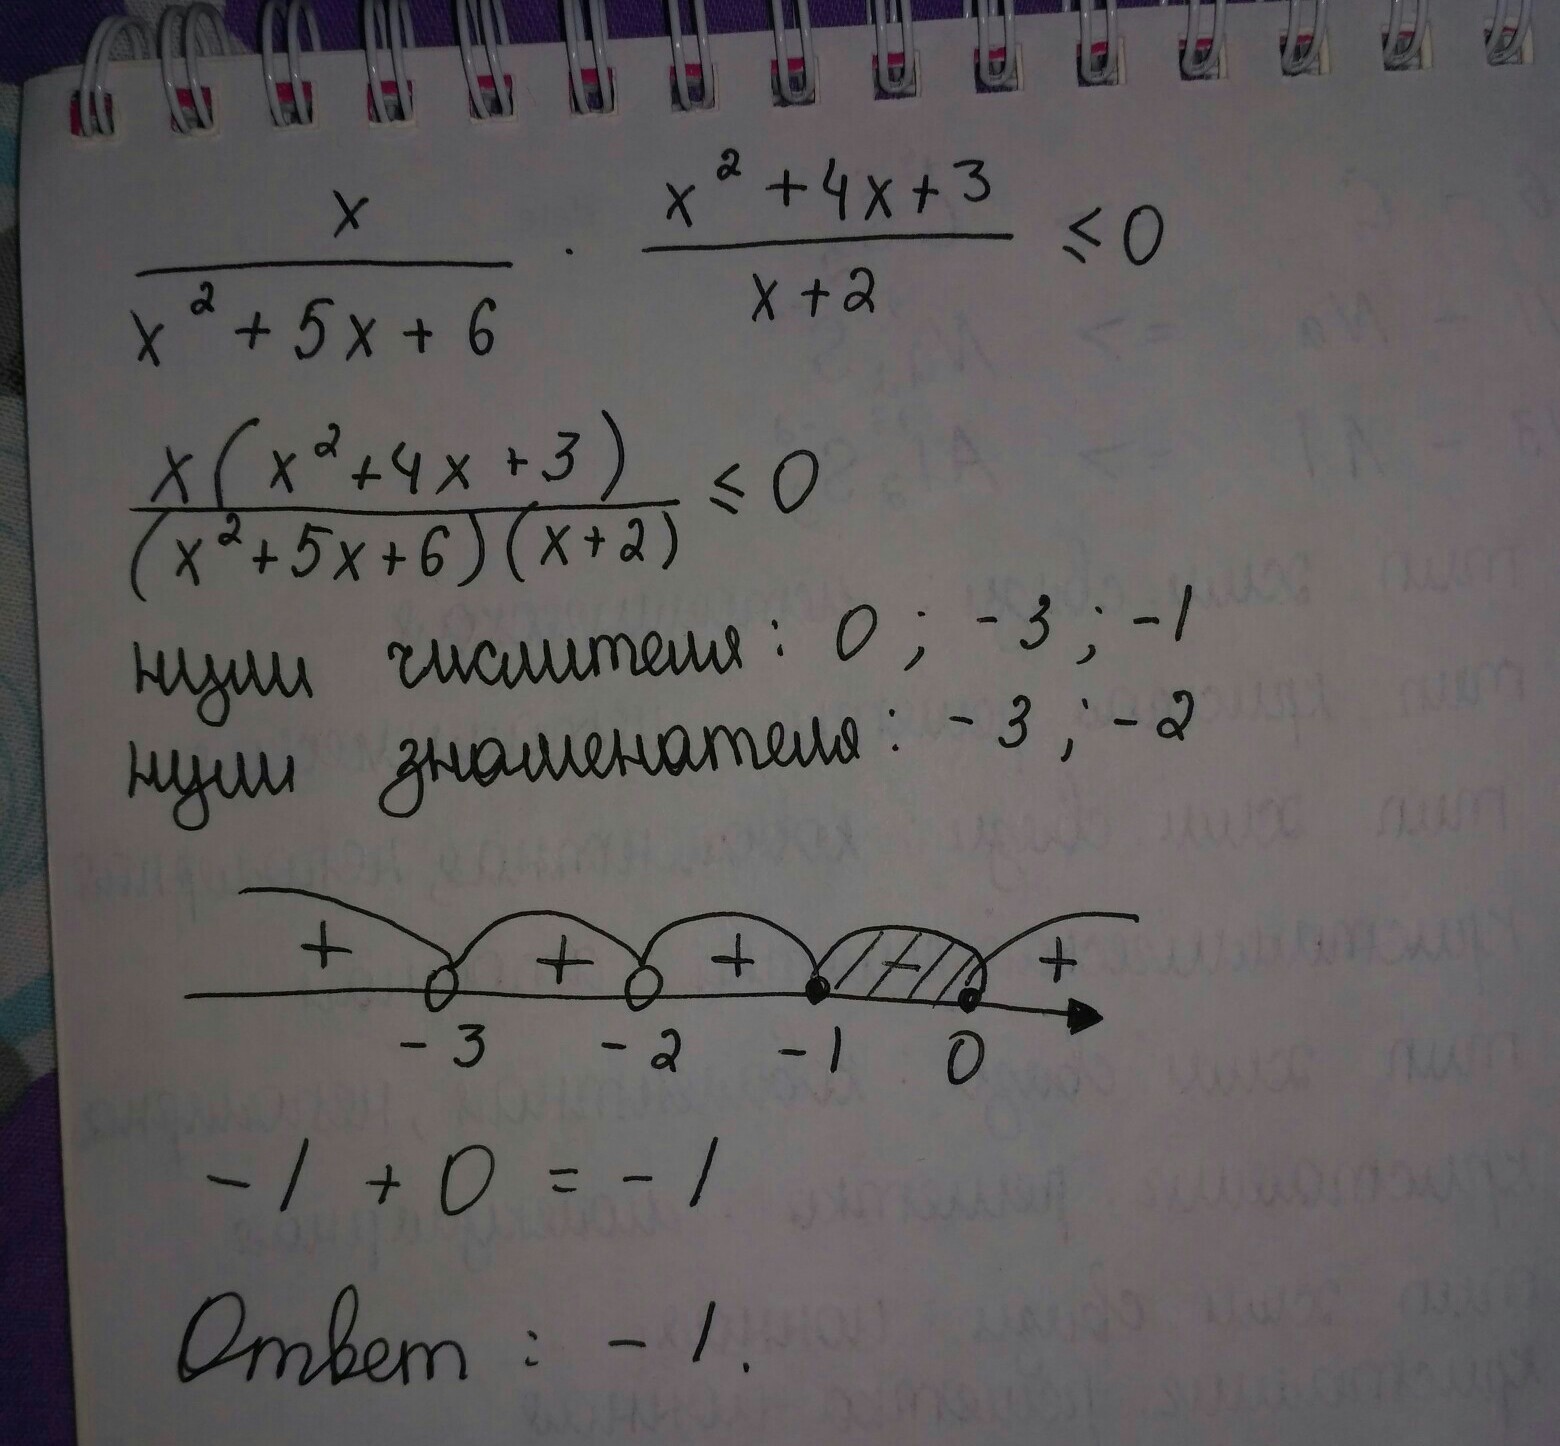 x/(x² + 5x + 6) · (x² + 4x + 3)/(x + 2) ≤ 0
x(x² + 4x + 3)/((x² + 5x + 6)(x + 2)) ≤ 0
нули числителя: 0; -3; -1
нули знаменателя: -3; -2
+ + + - +
-3 -2 -1 0
-1 + 0 = -1
Ответ: -1.